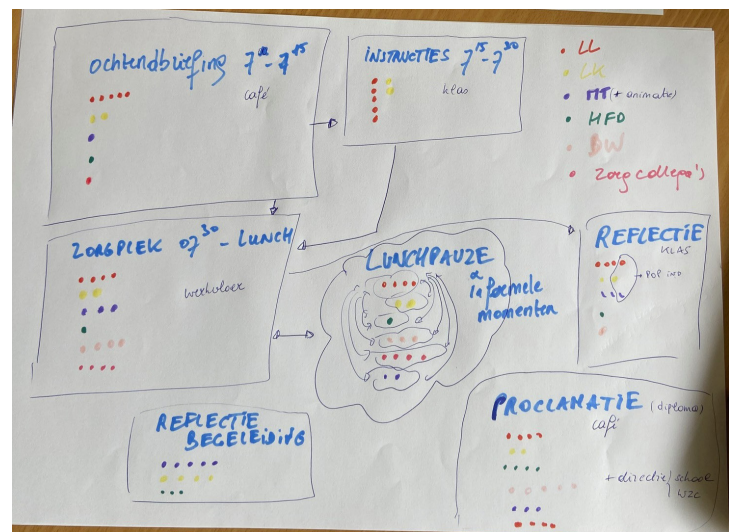 Ochtendbriefing 7⁰⁰ - 7¹⁵
café
INSTRUCTIES 7¹⁵ - 7³⁰
klas
LL
LK
MT (+ animatie)
HFD
BW
Zorg collega's
ZORGPLEK 07³⁰ - LUNCH
werkvloer
LUNCHPAUZE
informele
momenten
REFLECTIE
KLAS
POP info
REFLECTIE
BEGELEIDING
PROCLAMATIE (diploma)
café
+ directie / school
WZC